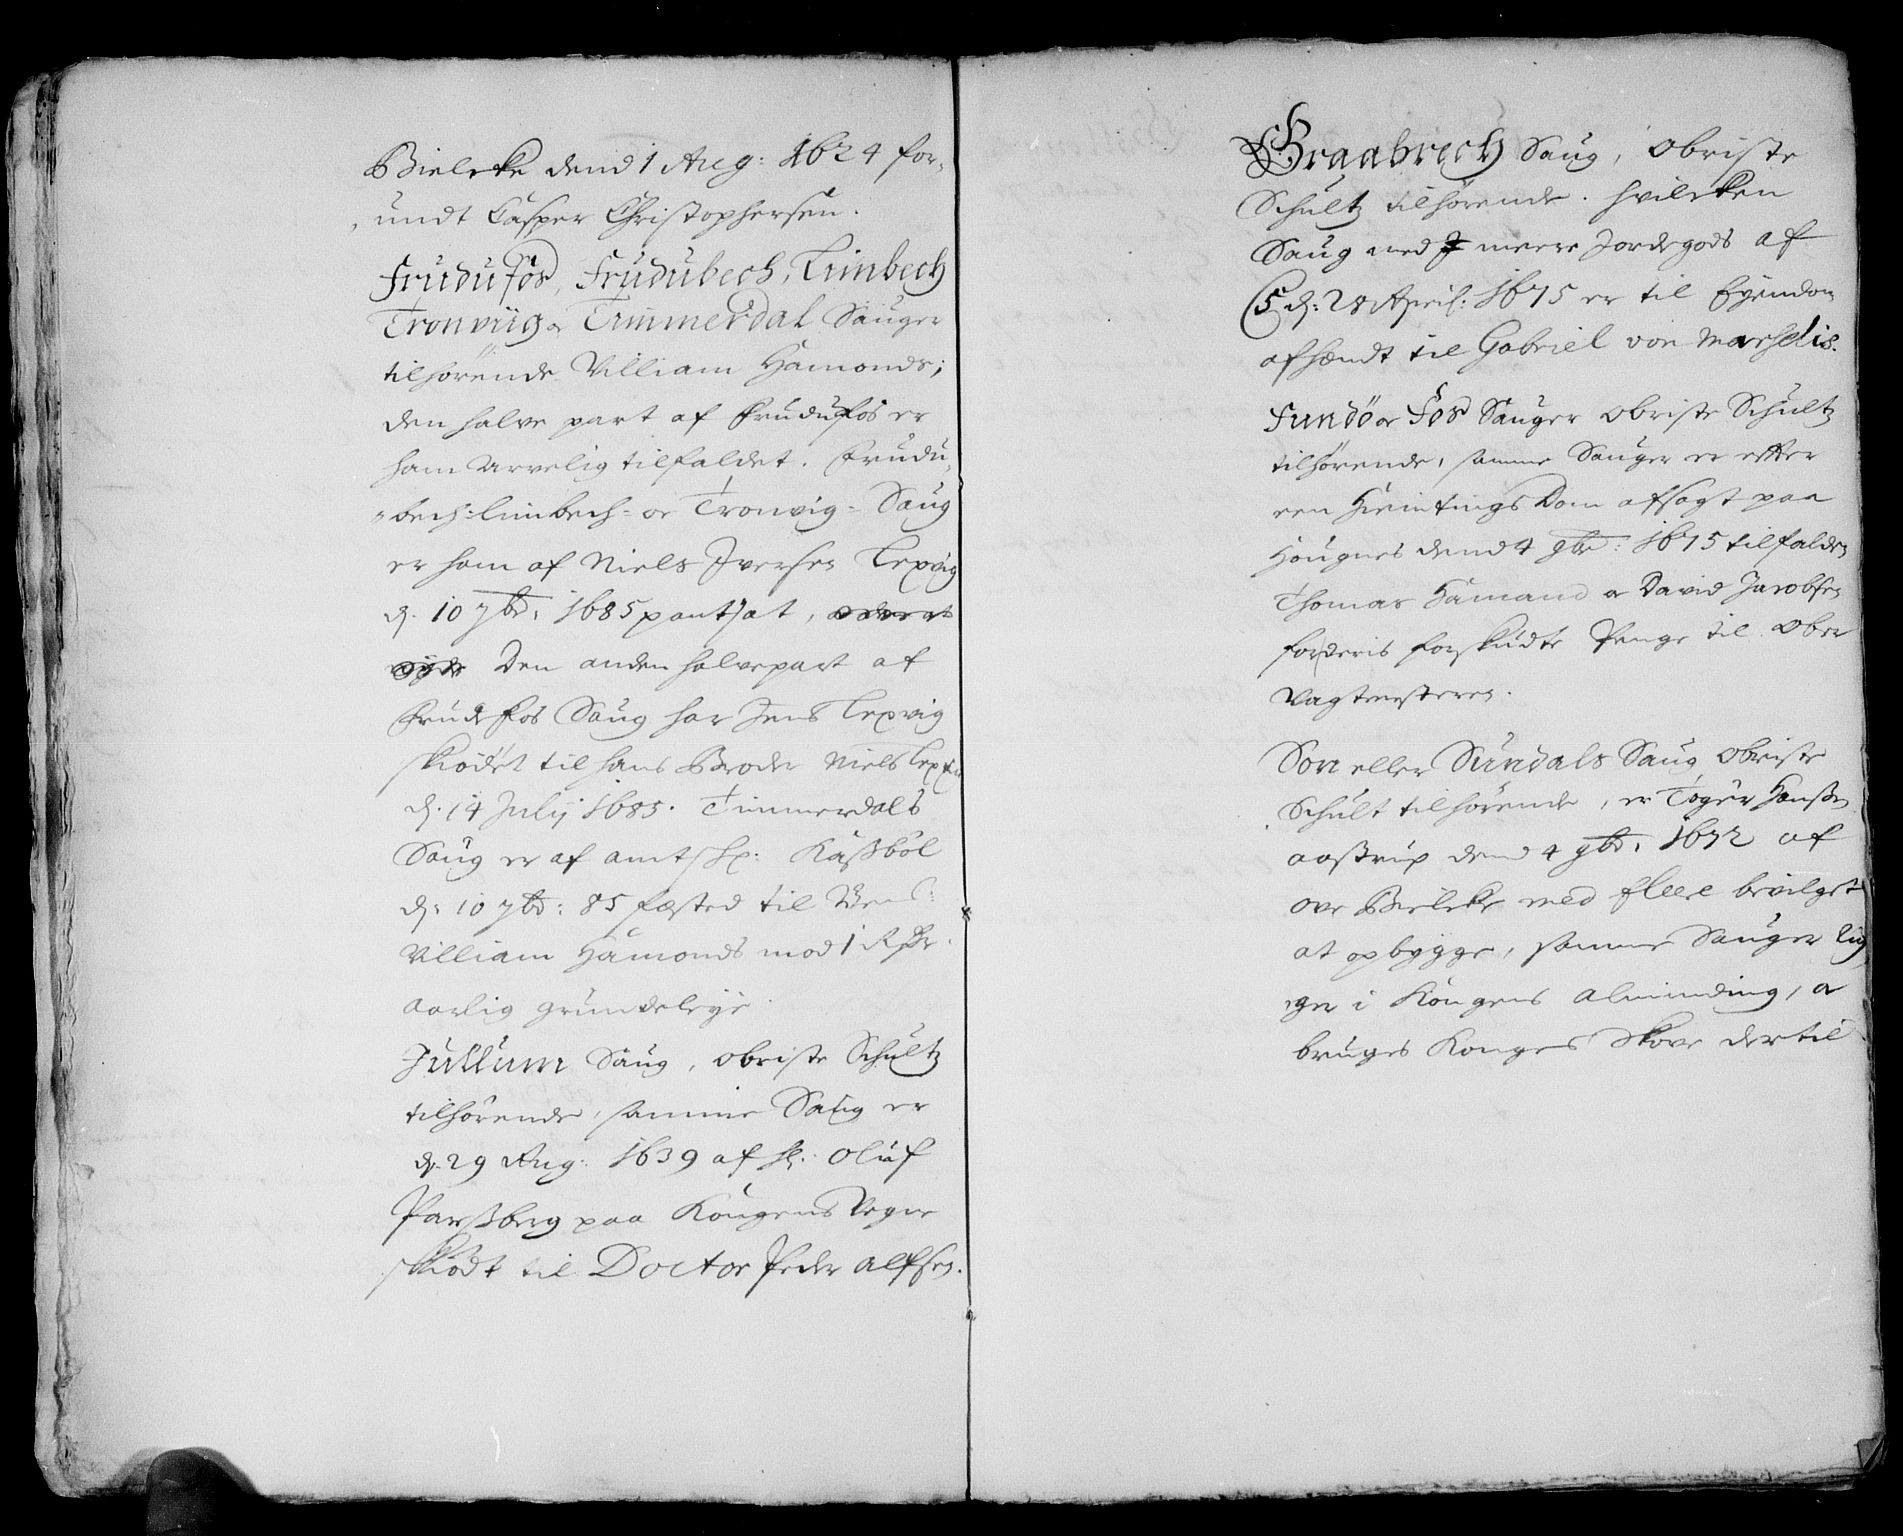 Bielcke dend 1 Aug: 1624 for-
undt Casper Christophersen.
Frudufos, Frudubech, Limbech
Tronviig oc Timmerdal Sauger
tilhørende Villiam Hamonds;
den halve part af Frudufos er
ham arvelig tilfaldet. Frudu-
bech- limbech- oc Tronvig- Saug
er ham af Niels Iversen Lepvig
d. 10 7br: 1685 pantsat,
Den anden halvepart af
Frudefos Saug har Jens Lepvig
skiødet til hans Broder Niels
d. 14 Julij 1685. Timmerdals
Saug er af amtsk: Kassbøl
d: 10 7br: 85 fæsted til
Villiam Hamonds mod 1 Rdr
aarlig grundeleye
Jullum Saug, obriste Schultz
tilhørende, samme Saug er
d. 29 Aug: 1639 af Hr: Oluf
Parssberg paa Kongens Vegne
skiødt til Doctor Peder Alfsen.
Graabrech Saug, Obriste
Schultz tilhørende. hvilcken
Saug med meere Jordegods af
C5 d: 28 April: 1675 er til Eyendom
afhændt til Gabriel von Marselis.
Fundø oc Fos Sauger obriste Schultz
tilhørende, samme Sauger er efter
een Hiemtings Dom afsagt paa
Hougnes dend 4 9br: 1675 tilfalden
Thomas Hamand oc David Jacobsen
for deris forskudte Penge til Ober
Vagtmesteren.
Son eller Sundals Saug Obriste
Schult tilhørende, er Tøger Hanssen
aastrup dend 4 9br. 1672 af
Ove Bielcke med fleere bevilget
at opbygge, samme Sauger lig
ger i Kongens Alminding, oc
bruges Konges Skove dertil.